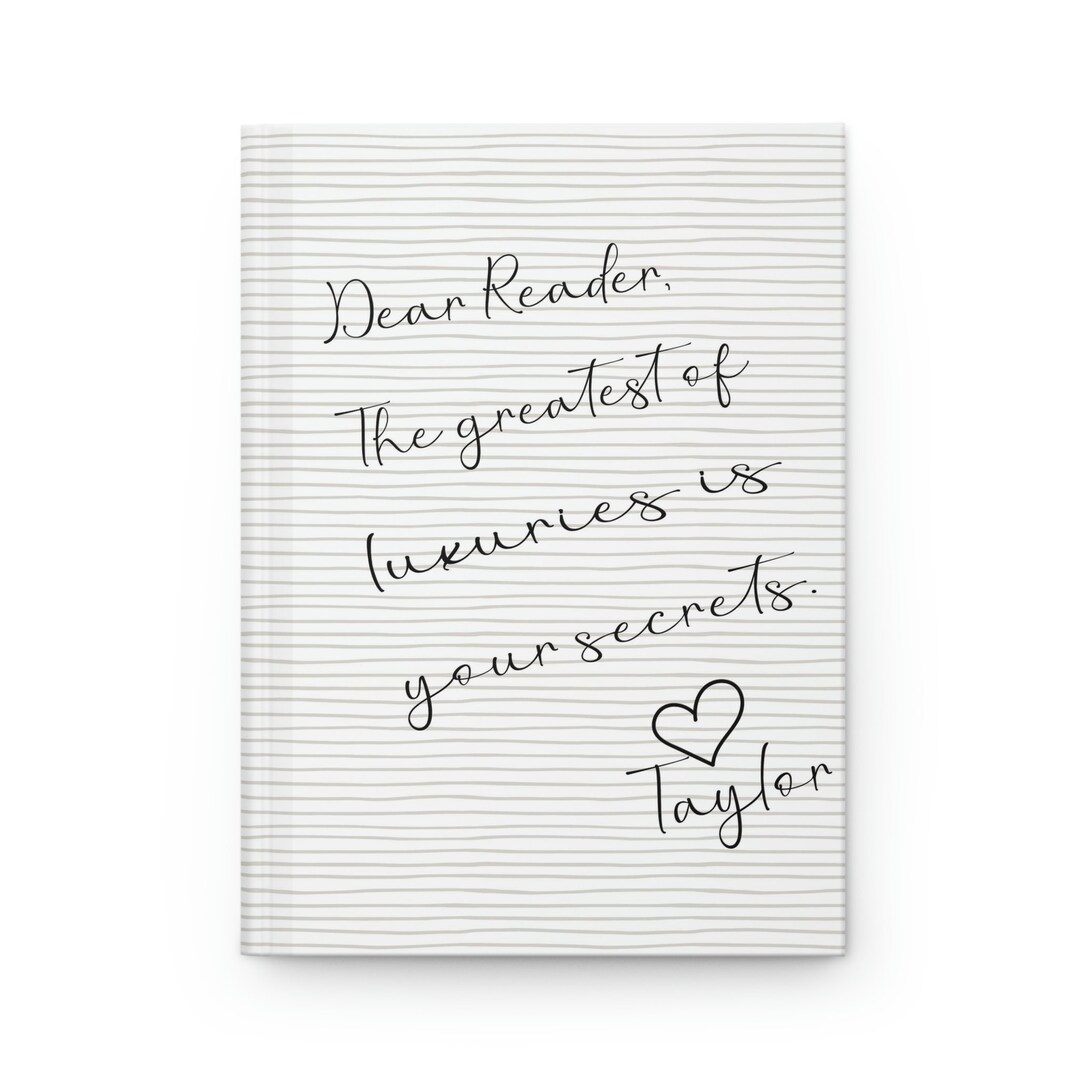 Dear Reader,
The greatest of
luxuries is
your secrets.
Taylor